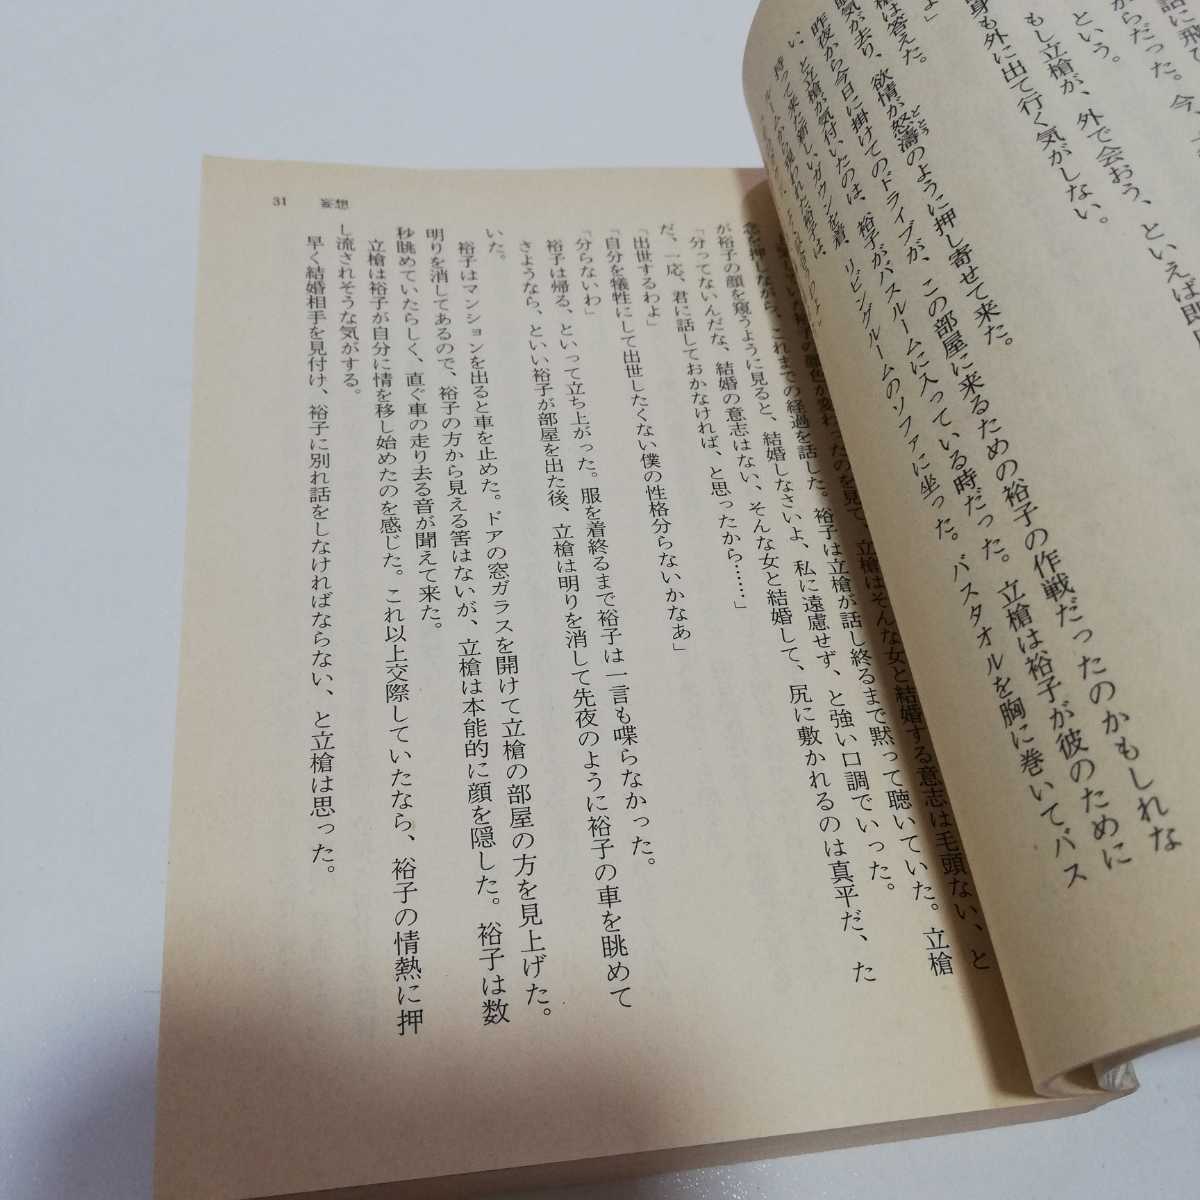 話に飛び
からだった。今、
という。
もし立槍が、外で会おう、といえば即
身も外に出て行く気がしない。
よ」
槍は答えた。
気が去り、欲情が怒濤のように押し寄せて来た。
どとう
昨夜から今日に掛けてのドライブが、この部屋に来るための裕子の作戦だったのかもしれな
い、と立槍が気付いたのは、裕子がバスルームに入っている時だった。立槍は裕子が彼のために
持って来た新しいガウンを着、リビングルームのソファに坐った。バスタオルを胸に巻いてバス
ルームから現われた裕子は、
の顔色が変わったのを見て、立槍はそんな女と結婚する意志は毛頭ない、と
念を押しながら、これまでの経過を話した。裕子は立槍が話し終るまで黙って聴いていた。立槍
が裕子の顔を窺うように見ると、結婚しなさいよ、私に遠慮せず、と強い口調でいった。
「分ってないんだな、結婚の意志はない、そんな女と結婚して、尻に敷かれるのは真平だ、た
だ、一応、君に話しておかなければ、と思ったから……」
「出世するわよ」
「自分を犠牲にして出世したくない僕の性格分らないかなあ」
「分らないわ」
裕子は帰る、といって立ち上がった。服を着終るまで裕子は一言も喋らなかった。
さようなら、といい裕子が部屋を出た後、立槍は明りを消して先夜のように裕子の車を眺めて
いた。
裕子はマンションを出ると車を止めた。ドアの窓ガラスを開けて立槍の部屋の方を見上げた。
明りを消してあるので、裕子の方から見える筈はないが、立槍は本能的に顔を隠した。裕子は数
秒眺めていたらしく、直ぐ車の走り去る音が聞えて来た。
立槍は裕子が自分に情を移し始めたのを感じた。これ以上交際していたなら、裕子の情熱に押
し流されそうな気がする。
早く結婚相手を見付け、裕子に別れ話をしなければならない、と立槍は思った。
31 妄想